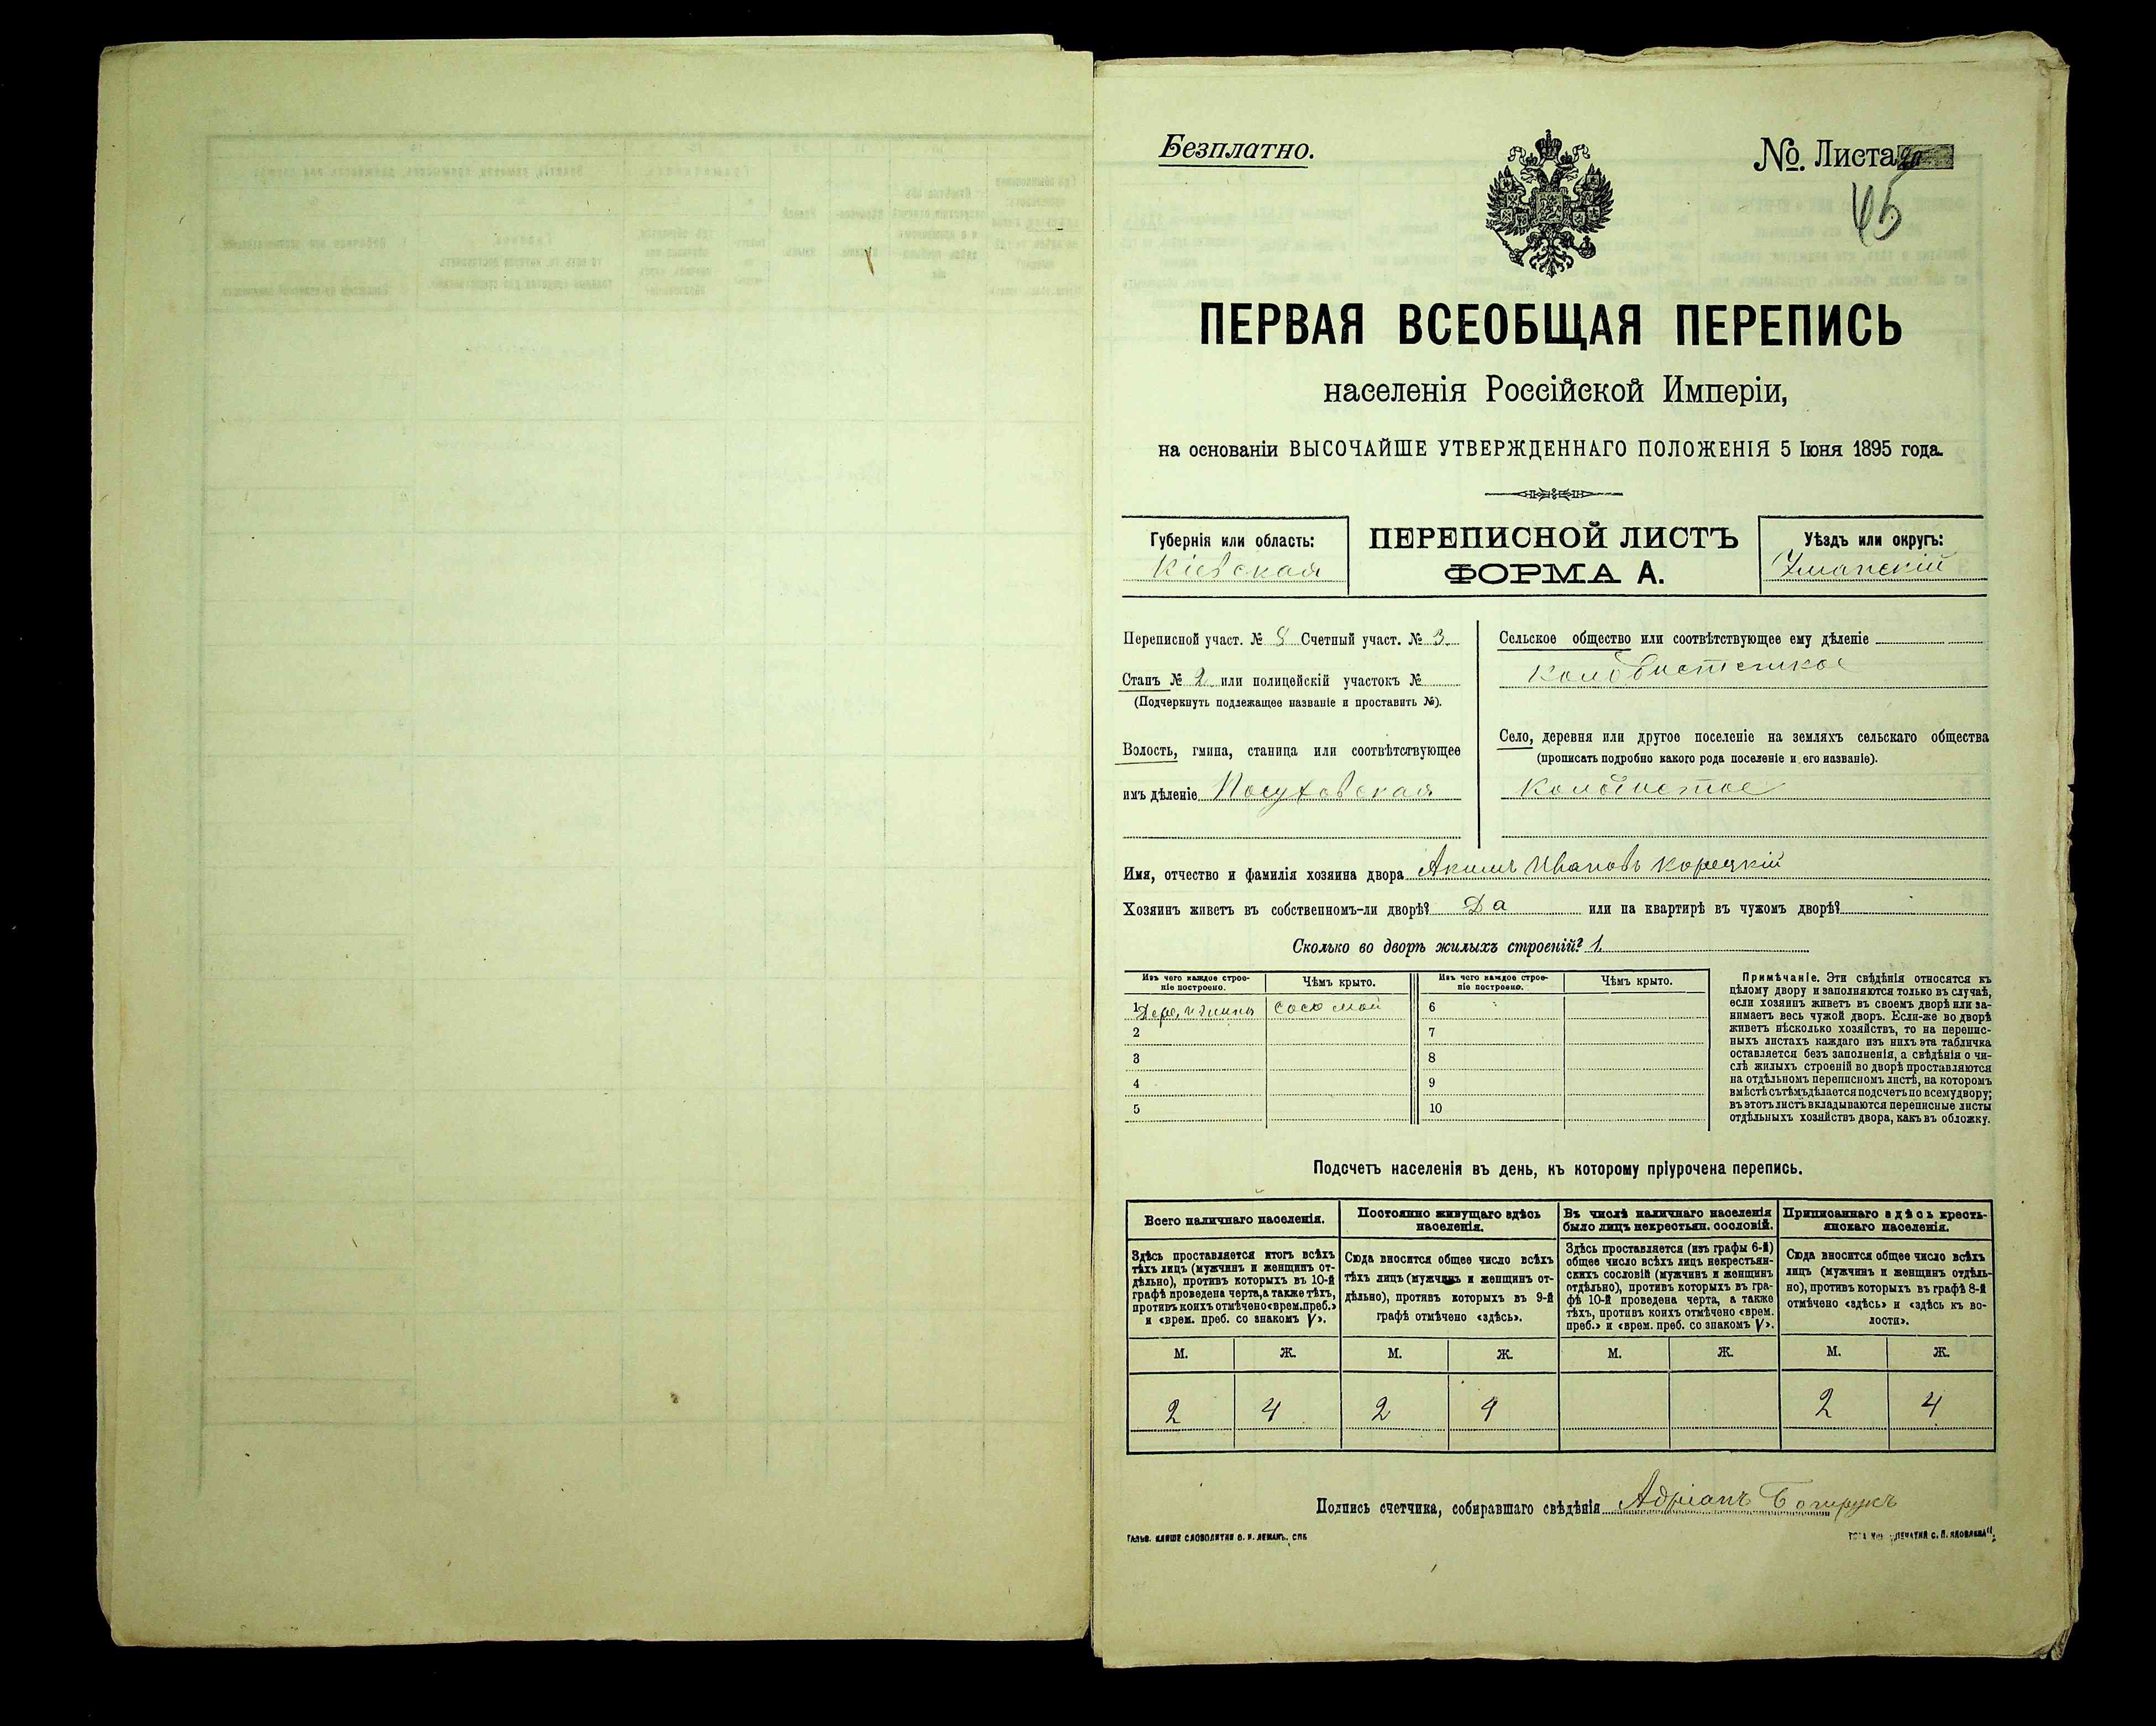 Безплатно.
№. Листа
45
ПЕРВАЯ ВСЕОБЩАЯ ПЕРЕПИСЬ
населенія Россійской Имперіи,
на основаніи ВЫСОЧАЙШЕ УТВЕРЖДЕННАГО ПОЛОЖЕНІЯ 5 Іюня 1895 года.
Губернія или область:
Кіевская
ПЕРЕПИСНОЙ ЛИСТЪ
ФОРМА А.
Уѣздъ или округъ:
Уманскій
Переписной участ. № 8 Счетный участ. № 3
Станъ № 2 или полицейскій участокъ №
(Подчеркнуть подлежащее названіе и проставить №).
Волость, гмина, станица или соотвѣтствующее
имъ дѣленіе Посуховская
Сельское общество или соотвѣтствующее ему дѣленіе
Село, деревня или другое поселеніе на земляхъ сельскаго общества
(прописать подробно какого рода поселеніе и его названіе).
Колодистое
Имя, отчество и фамилія хозяина двора Акимъ Ивановъ Корецкій
Хозяинъ живетъ въ собственномъ-ли дворѣ? Да или на квартирѣ въ чужомъ дворѣ?
Сколько во дворѣ жилыхъ строеній? 1
Изъ чего каждое строе-
ніе построено.
Чѣмъ крыто.
Изъ чего каждое строе-
ніе построено.
Чѣмъ крыто.
1 Дере, и глины соломой 6
2 7
3 8
4 9
5 10
Примѣчаніе. Эти свѣдѣнія относятся къ
цѣлому двору и заполняются только въ случаѣ,
если хозяинъ живетъ въ своемъ дворѣ или за-
нимаетъ весь чужой дворъ. Если-же во дворѣ
живетъ нѣсколько хозяйствъ, то на перепис-
ныхъ листахъ каждаго изъ нихъ эта табличка
оставляется безъ заполненія, а свѣдѣнія о чи-
слѣ жилыхъ строеній во дворѣ проставляются
на отдѣльномъ переписномъ листѣ, на которомъ
вмѣстѣ съ тѣмъ дѣлается подсчетъ по всему двору;
въ этотъ листъ вкладываются переписные листы
отдѣльныхъ хозяйствъ двора, какъ въ обложку.
Подсчетъ населенія въ день, къ которому пріурочена перепись.
Всего наличнаго населенія.
Здѣсь проставляется итогъ всѣхъ
тѣхъ лицъ (мужчинъ и женщинъ от-
дѣльно), противъ которыхъ въ 10-й
графѣ проведена черта, а также тѣхъ,
противъ коихъ отмѣчено «врем. преб.»
и «врем. преб. со знакомъ V».
Постоянно живущаго здѣсь
населенія.
Сюда вносится общее число всѣхъ
тѣхъ лицъ (мужчинъ и женщинъ от-
дѣльно), противъ которыхъ въ 9-й
графѣ отмѣчено «здѣсь».
Въ числѣ наличнаго населенія
было лицъ некрестьян. сословій.
Здѣсь проставляется (изъ графы 6-й)
общее число всѣхъ лицъ некрестьян-
скихъ сословій (мужчинъ и женщинъ
отдѣльно), противъ которыхъ въ гра-
фѣ 10-й проведена черта, а также
тѣхъ, противъ коихъ отмѣчено «врем.
преб.» и «врем. преб. со знакомъ V».
Приписаннаго здѣсь кресть-
янскаго населенія.
Сюда вносится общее число всѣхъ
лицъ (мужчинъ и женщинъ отдѣль-
но), противъ которыхъ въ графѣ 8-й
отмѣчено «здѣсь» и «здѣсь къ во-
лости».
М. Ж. М. Ж. М. Ж. М. Ж.
2 4 2 4 2 4
Подпись счетчика, собиравшаго свѣдѣнія Адріанъ
ГАЛЬВ. КЛИШЕ СЛОВОЛИТНИ О. И. ЛЕМАНЪ, СПБ